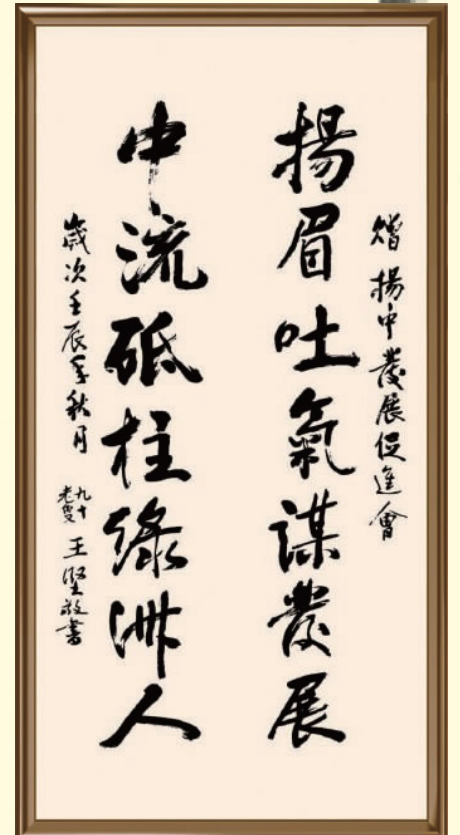 贈揚中發展促進會
揚眉吐氣謀發展
中流砥柱綠洲人
歲次壬辰年秋月
九十老叟 王堅敬書